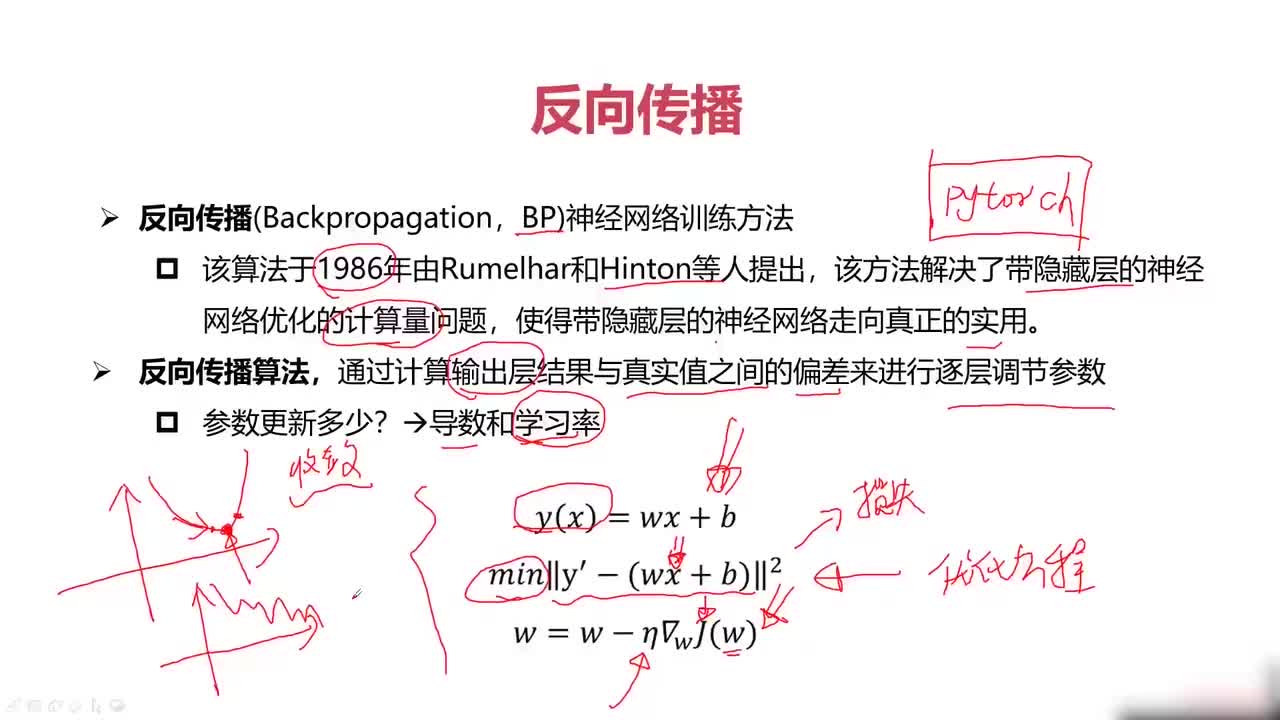 反向传播
pytorch
反向传播(Backpropagation，BP)神经网络训练方法
该算法于1986年由Rumelhar和Hinton等人提出，该方法解决了带隐藏层的神经
网络优化的计算量问题，使得带隐藏层的神经网络走向真正的实用。
反向传播算法，通过计算输出层结果与真实值之间的偏差来进行逐层调节参数
参数更新多少？→导数和学习率
收敛
y(x) = wx + b
损失
min‖y′ − (wx + b)‖²
优化方程
w = w − η∇wJ(w)